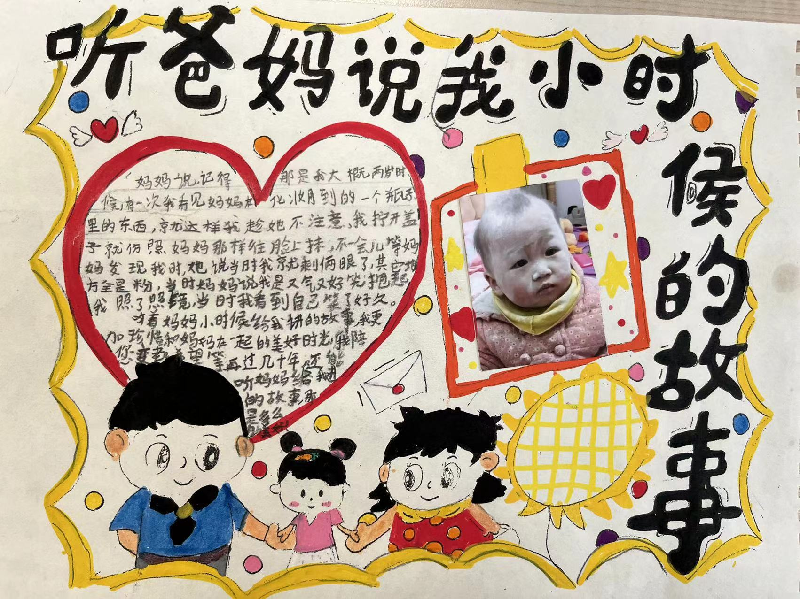 听爸妈说我小时
候的故事
妈妈说记得 那是我大概两岁时
候有一次我看见妈妈 化妆用到的一个瓶子
里的东西,就这样我趁她不注意,我拧开盖
子就仿照妈妈那样往脸上抹,不一会儿等妈
妈发现我时,她说当时我就剩两眼了,其它地
方全是粉,当时妈妈说我是又气又好笑把
我照了照镜,当时我看到自己笑了好久。
妈妈小时候给我讲的故事我更
加珍惜和妈妈在一起的美好时光我陪
你 希望 再过几十年还
听妈妈给
的故事